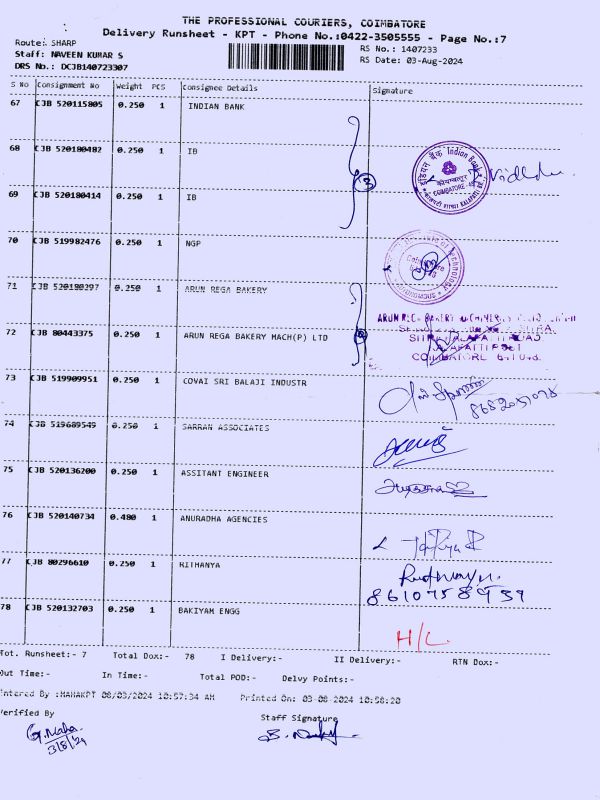 THE PROFESSIONAL COURIERS, COIMBATORE
Delivery Runsheet - KPT - Phone No.:0422-3505555 - Page No.:7
Route: SHARP
RS No.: 1407233
Staff: NAVEEN KUMAR S
RS Date: 03-Aug-2024
DRS No.: DCJB140723307
S No Consignment No Weight PCS Consignee Details Signature
67 CJB 520115805 0.250 1 INDIAN BANK
68 CJB 520180482 0.250 1 IB
3
Indian Bank
COIMBATORE
69 CJB 520180414 0.250 1 IB
70 CJB 519982476 0.250 1 NGP
Technology
Coimbatore
71 CJB 520180297 0.250 1 ARUN REGA BAKERY
ARUN REGA BAKERY MACHINERY
72 CJB 80443375 0.250 1 ARUN REGA BAKERY MACH(P) LTD
COIMBATORE
73 CJB 519909951 0.250 1 COVAI SRI BALAJI INDUSTR
74 CJB 519689549 0.250 1 SARRAN ASSOCIATES
75 CJB 520136200 0.250 1 ASSITANT ENGINEER
76 CJB 520140734 0.480 1 ANURADHA AGENCIES
77 CJB 80296610 0.250 1 RITHANYA
78 CJB 520132703 0.250 1 BAKIYAM ENGG
H/L
Tot. Runsheet:- 7 Total Dox:- 78 I Delivery:- II Delivery:- RTN Dox:-
Out Time:- In Time:- Total POD:- Delvy Points:-
Entered By :MAHAKPT 08/03/2024 10:57:34 AM Printed On: 03-08-2024 10:58:20
Verified By Staff Signature
G. Maha
3/8/24